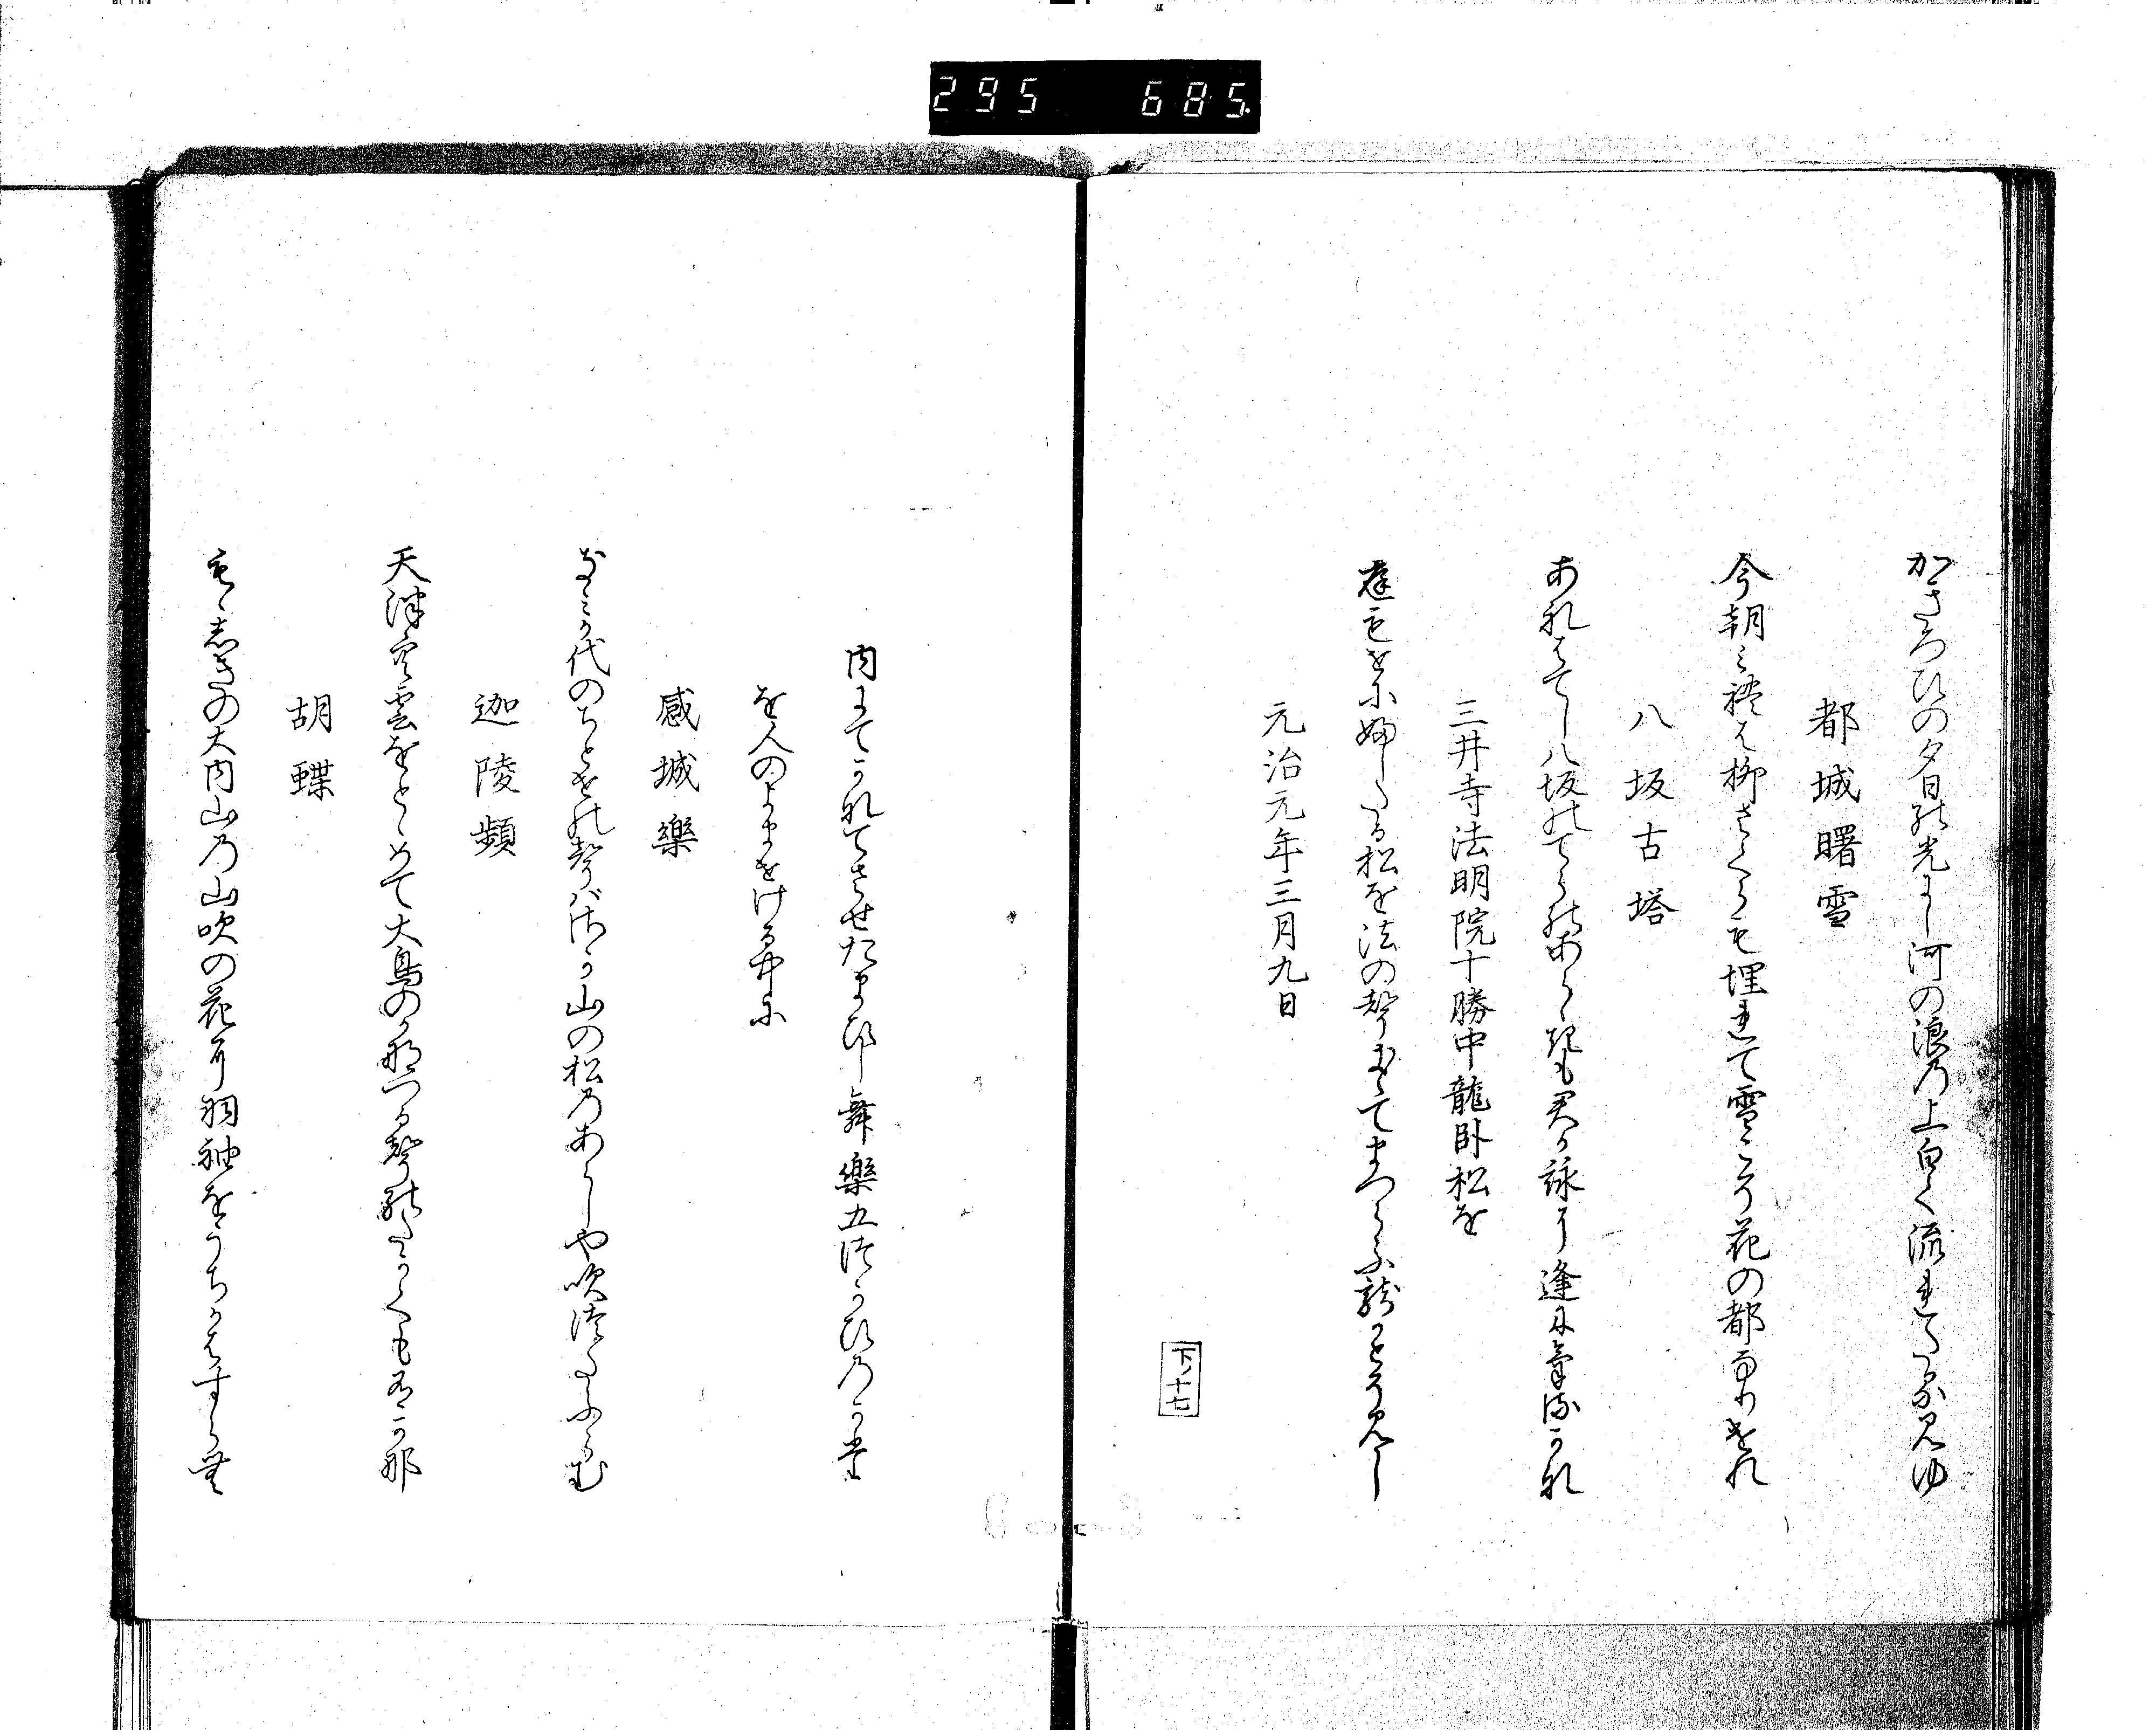 295 685
かきろひの夕日の光よし河の浪乃上白く流れ見ゆ
都城曙雪
今朝みれは柳さくらも埋れて雪こそ花の都なりけれ
八坂古塔
あれはてし八坂のてらのあらゝきも君か詠に逢にけるかれ
三井寺法明院十勝中龍卧松を
を松を法の聲きゝてまつらふ龍かとそ見し
元治元年三月九日
下ノ十七
内にてかれてさせたまひし舞樂五つかひ乃
を人のよませける中に
感城樂
代のちとせの聲はから山の松乃あらしや吹つたふらむ
迦陵頻
天津空雲をとゝめて大鳥のかなつる聲のたかくも有か那
胡蝶
もゝしきの大内山乃山吹の花に羽袖をうちかはすらむ